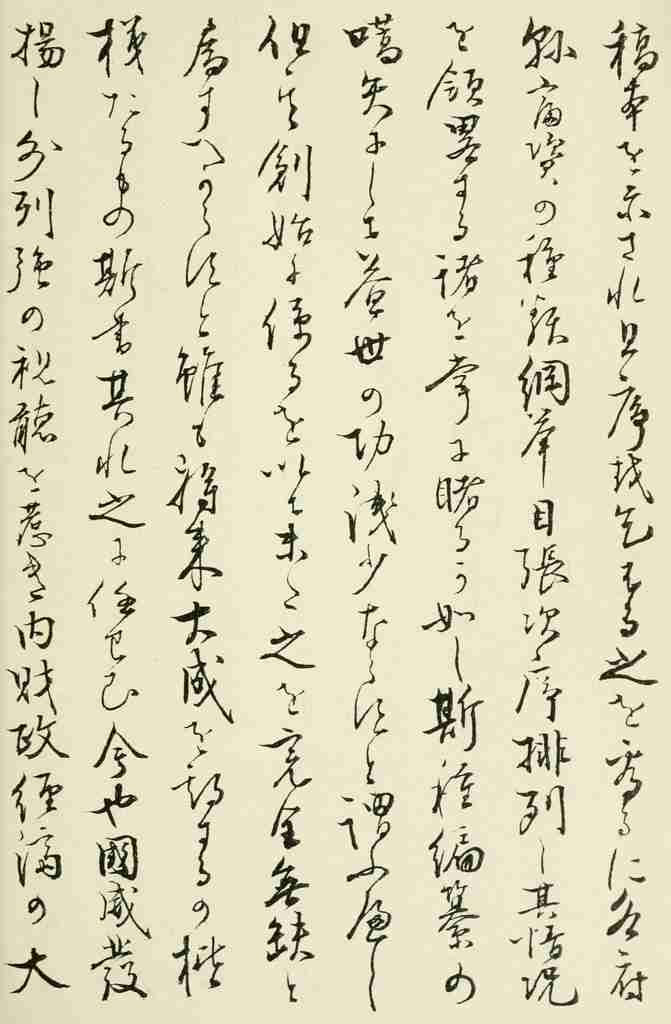 稿本を示され且序紋を乞はる之を審るに各府
縣富資の種類綱挙目張次序排列し其情況
を領畧する諸を掌に睹るか如し斯種編纂の
嚆矢にして益世の功浅少ならすと謂ふへし
但其創始に係るを以て未た之を完全無缺と
為すへからすと雖も将来大成を期するの楷
模たるもの斯書其れ之に任せむ今や國威發
揚し外列強の視聴を惹き内財政経済の大